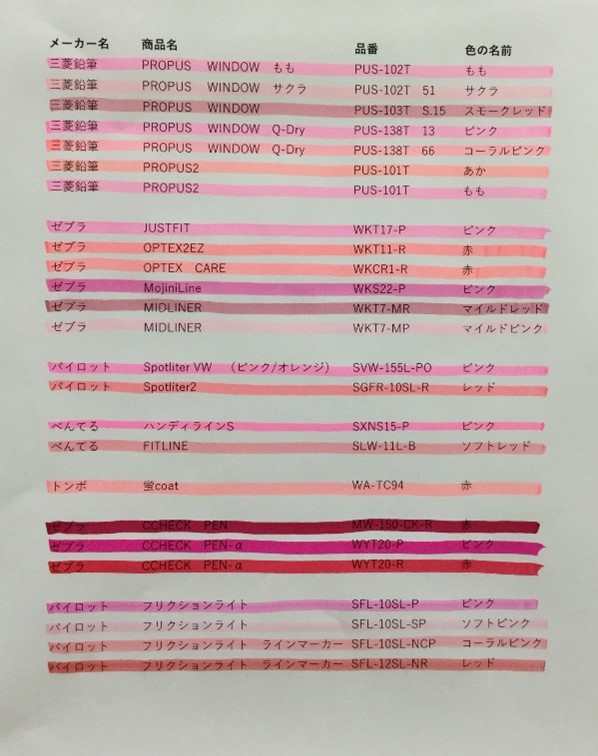 メーカー名 商品名 品番 色の名前
三菱鉛筆 PROPUS WINDOW もも PUS-102T もも
三菱鉛筆 PROPUS WINDOW サクラ PUS-102T 51 サクラ
三菱鉛筆 PROPUS WINDOW PUS-103T S.15 スモークレッド
三菱鉛筆 PROPUS WINDOW Q-Dry PUS-138T 13 ピンク
三菱鉛筆 PROPUS WINDOW Q-Dry PUS-138T 66 コーラルピンク
三菱鉛筆 PROPUS2 PUS-101T あか
三菱鉛筆 PROPUS2 PUS-101T もも
ゼブラ JUSTFIT WKT17-P ピンク
ゼブラ OPTEX2EZ WKT11-R 赤
ゼブラ OPTEX CARE WKCR1-R 赤
ゼブラ MojiniLine WKS22-P ピンク
ゼブラ MIDLINER WKT7-MR マイルドレッド
ゼブラ MIDLINER WKT7-MP マイルドピンク
パイロット Spotliter VW (ピンク/オレンジ) SVW-155L-PO ピンク
パイロット Spotliter2 SGFR-10SL-R レッド
ぺんてる ハンディラインS SXNS15-P ピンク
ぺんてる FITLINE SLW-11L-B ソフトレッド
トンボ 蛍coat WA-TC94 赤
ゼブラ CCHECK PEN MW-150-CK-R 赤
ゼブラ CCHECK PEN-α WYT20-P ピンク
ゼブラ CCHECK PEN-α WYT20-R 赤
パイロット フリクションライト SFL-10SL-P ピンク
パイロット フリクションライト SFL-10SL-SP ソフトピンク
パイロット フリクションライト ラインマーカー SFL-10SL-NCP コーラルピンク
パイロット フリクションライト ラインマーカー SFL-12SL-NR レッド